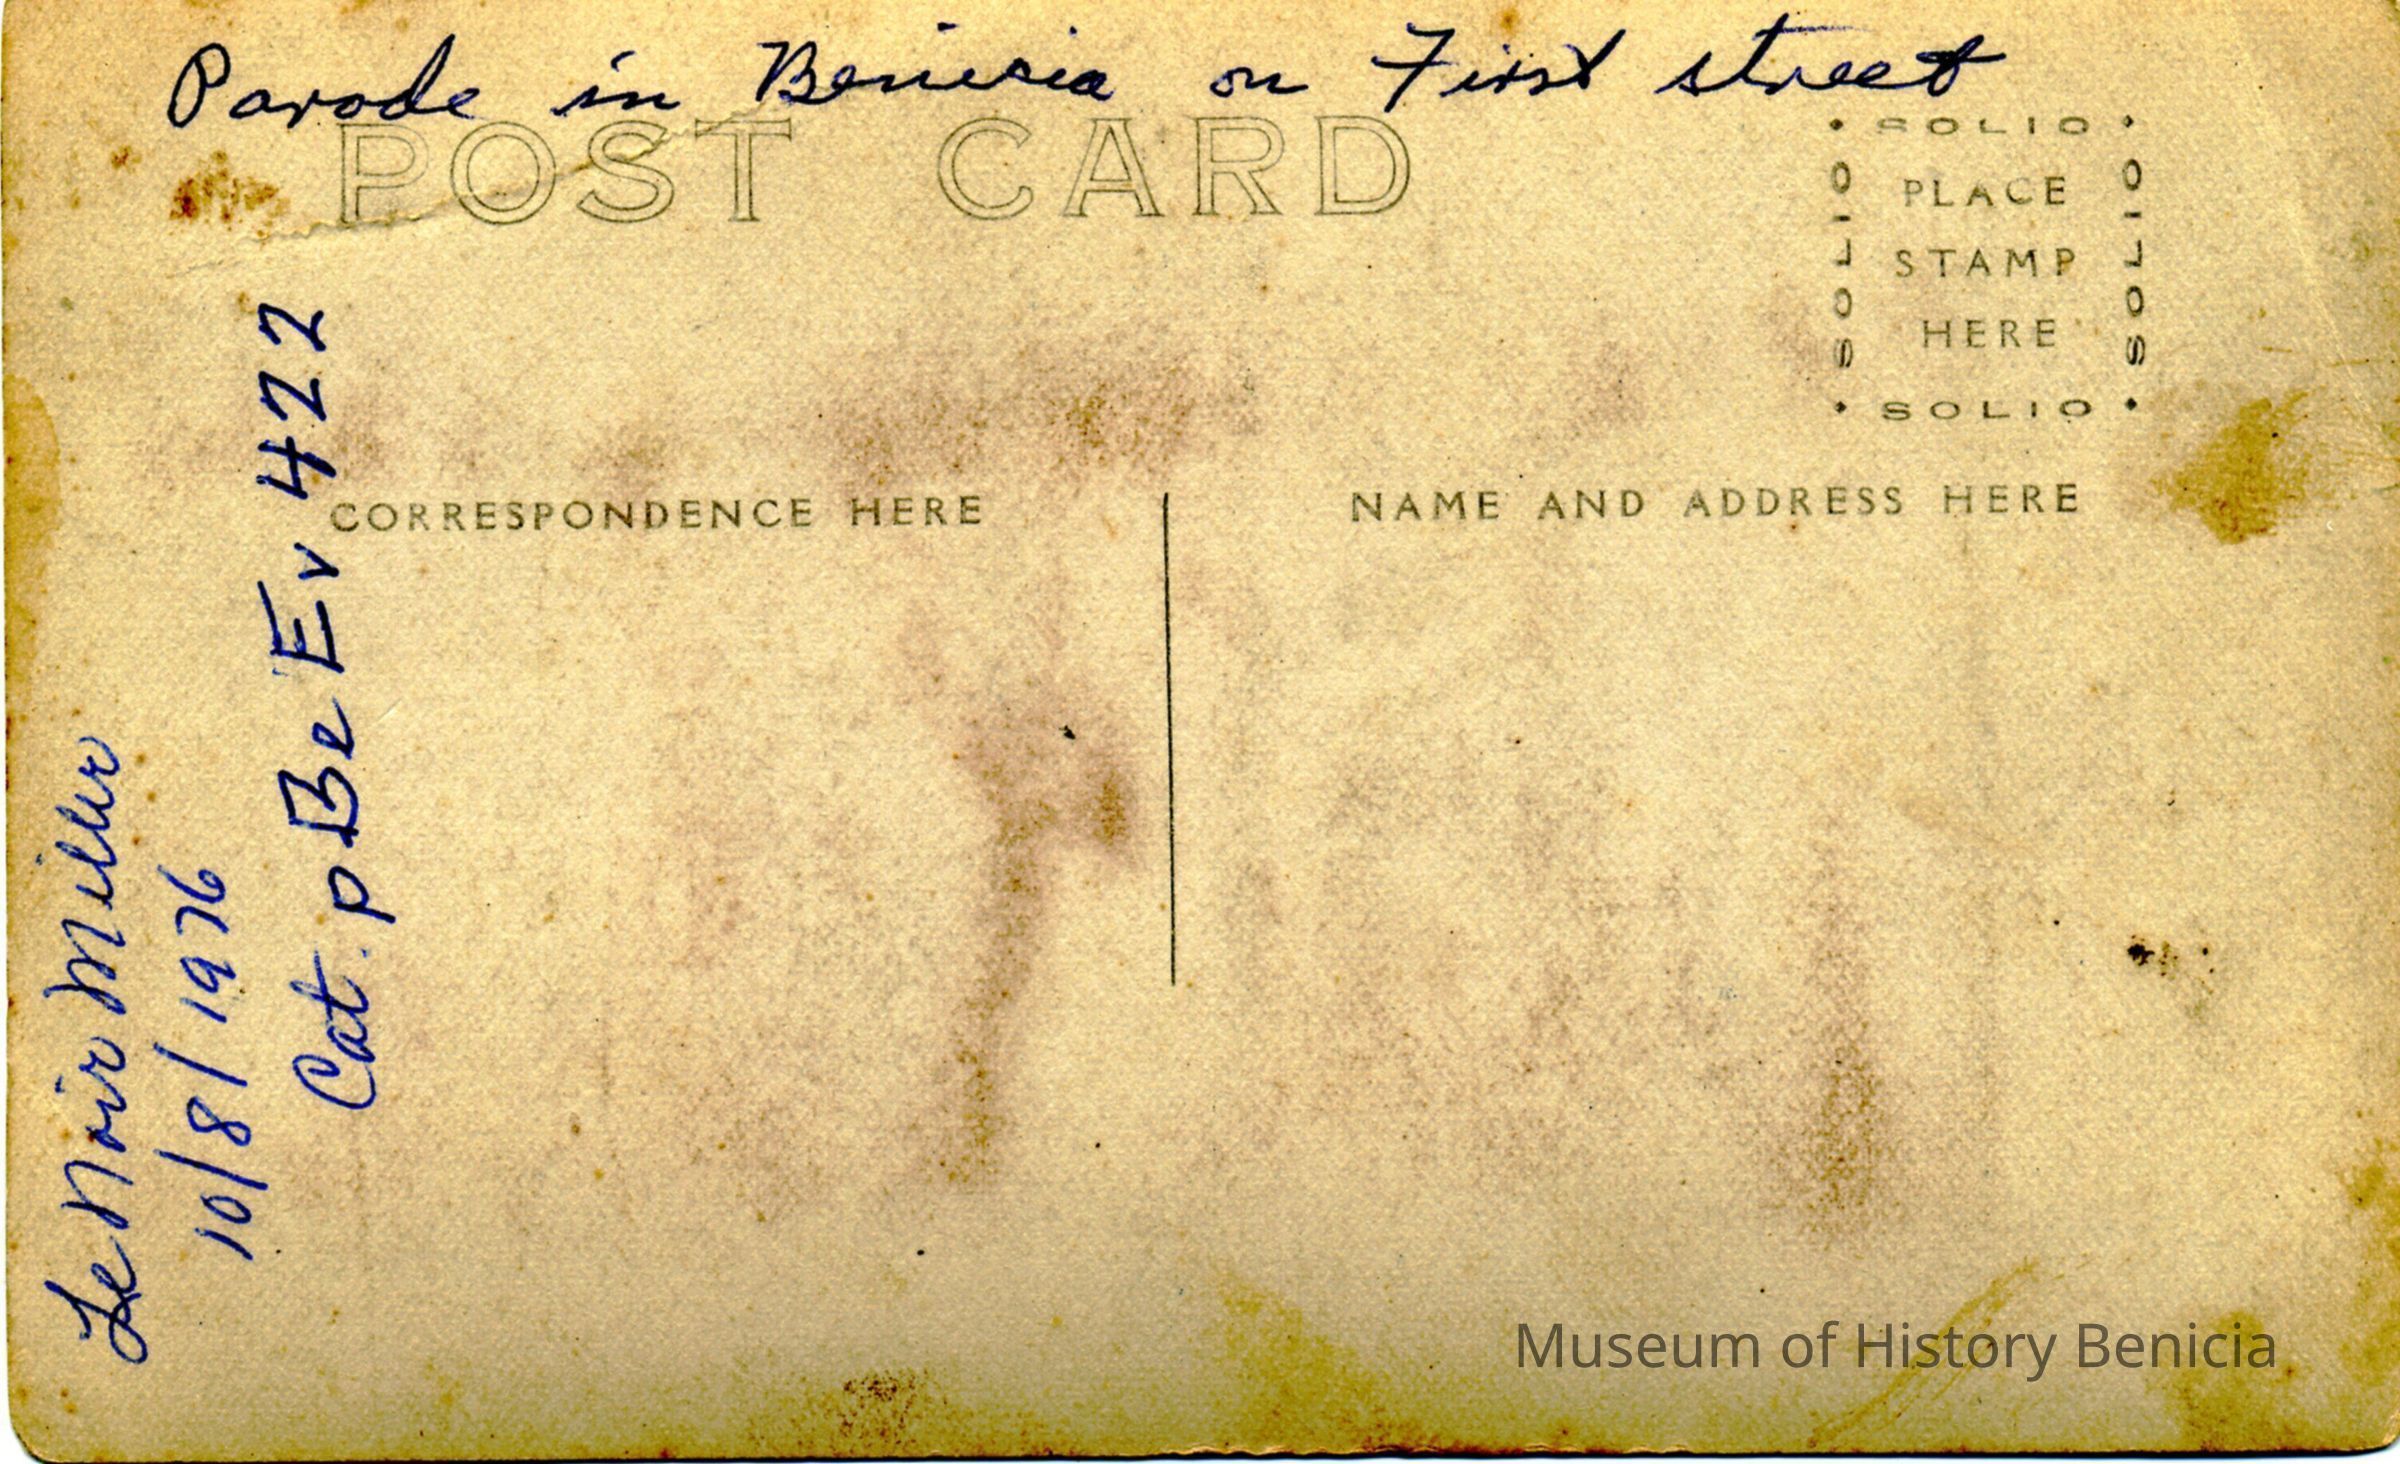 Parade in Benicia on First street
POST CARD
SOLIO
SOLIO
PLACE
STAMP
HERE
SOLIO
SOLIO
CORRESPONDENCE HERE
NAME AND ADDRESS HERE
Le Noir Miller
10/8/1976
Cat. p Be Ev 422
Museum of History Benicia